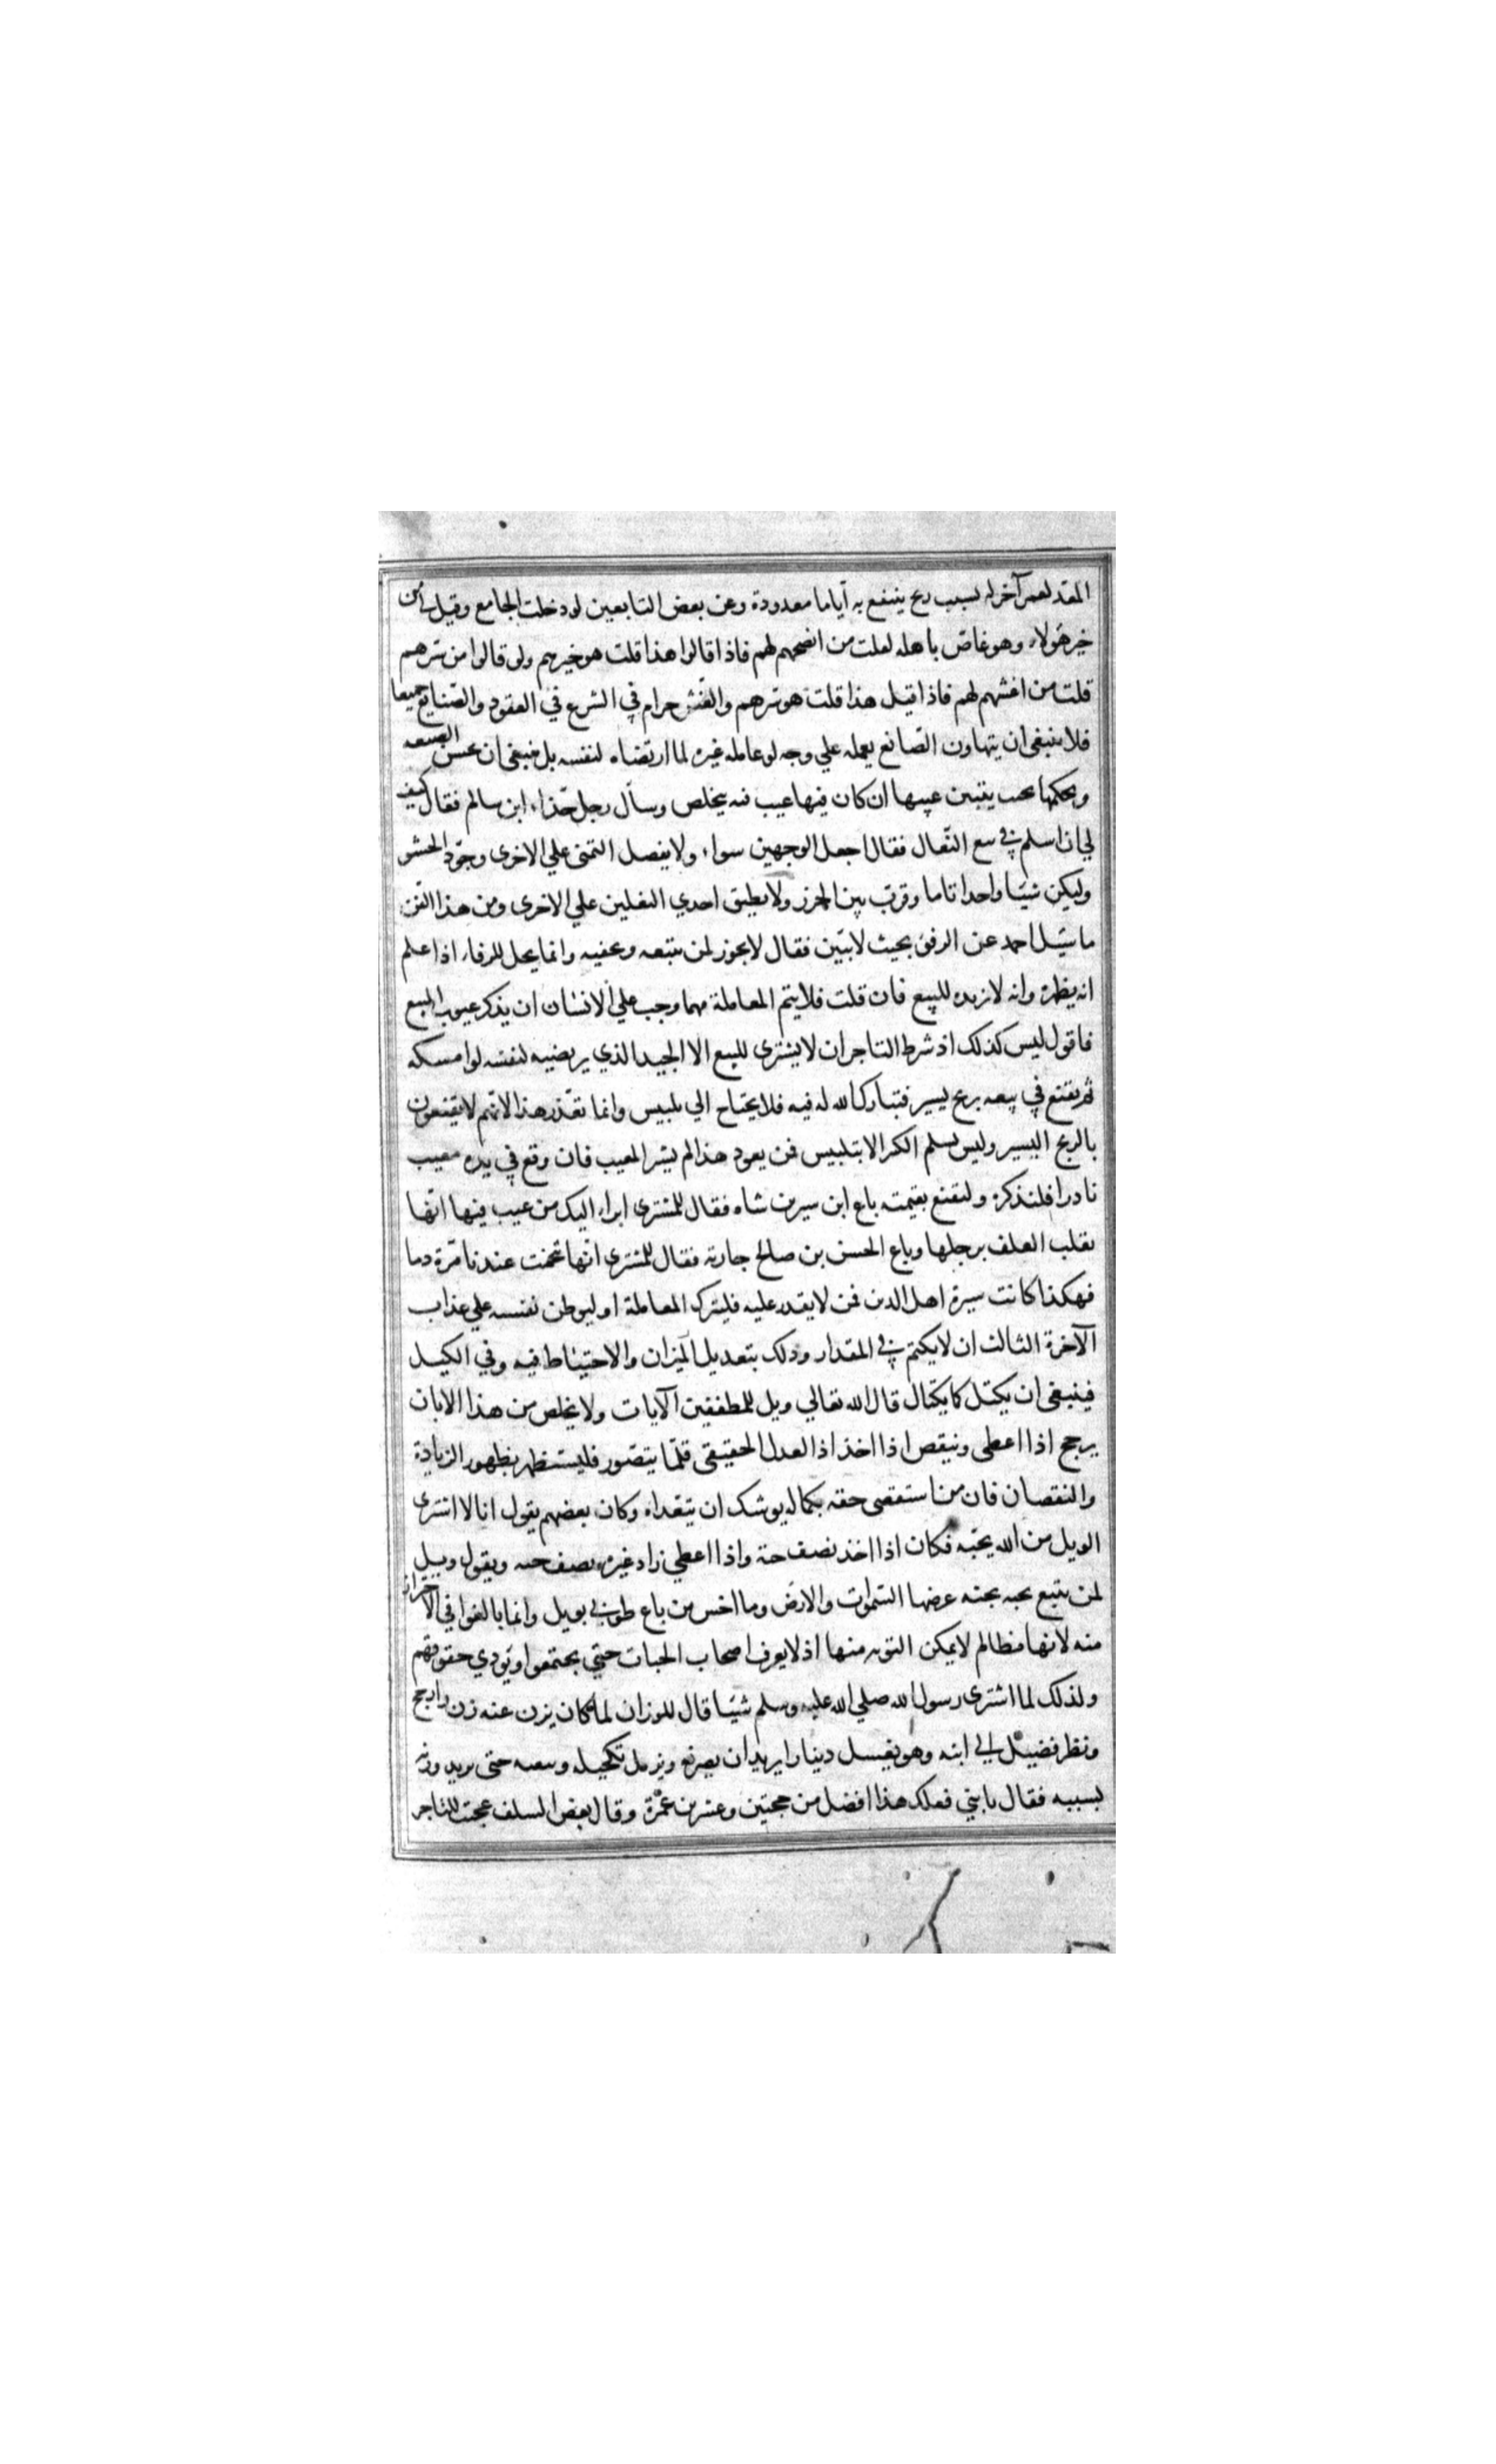 المعد لعمر آخر له بسبب ربح ينتفع به آياما معدودة وعن بعض التابعين لو دخلت الجامع وقيل لي من
خير هؤلاء وهو غاص باهله لقلت من انصحهم لهم فاذا قالوا هذا قلت هو خيرهم ولو قالوا من شرهم
قلت من اغشهم لهم فاذا قيل هذا قلت هو شرهم والغش حرام في الشرع في العقود والصنايع جميعا
فلا ينبغى ان يتهاون الصانع بعمله علي وجه لو عامله غيره لما ارتضاه لنفسه بل ينبغى ان يحسن الصنعه
ويحكمها يتبين عيبها ان كان فيها عيب فبه يخلص وسأل رجل حذاء ابن سالم فقال كيف
لي ان اسلم في بيع النعال فقال اجعل الوجهين سواء ولا يفضل اليمنى علي الاخرى وجود الحشو
وليكن شيئا واحدا تاما وقرب بين الخرز ولا يطبق احدي النعلين علي الاخرى ومن هذا الفن
ما سئيل احمد عن الرفو بحيث لا يتبين فقال لا يجوز لمن يبيعه ويخفيه وانما يحل للرفاء اذا علم
انه يظهره وانه لا يريده للبيع فان قلت فلا يتم المعاملة مهما وجب علي الانسان ان يذكر عيوب المبيع
فاقول ليس كذلك اذ شرط التاجر ان لا يشترى للبيع الا الجيد الذي يرتضيه لنفسه لو امسكه
ثم يقتنع في بيعه بربح يسير فتبارك الله له فيه فلا يحتاج الي تلبيس وانما تعذر هذا لانهم لا يقنعون
بالربح اليسير وليس يسلم الكثير الا بتلبيس فمن يعود هذا لم يشتر المعيب فان وقع في يده معيب
نادرا فلنذكره ولنقنع بقيمته باع ابن سيرين شاه فقال للمشترى ابراء اليك من عيب فيها انها
تقلب العلف برجلها وباع الحسن بن صالح جارية فقال للمشترى انها تنخمت عندنا مرة دما
فهكذا كانت سيرة اهل الدين فمن لا يقدر عليه فليترك المعاملة او ليوطن نفسه علي عذاب
الآخرة الثالث ان لا يكتم في المقدار وذلك بتعديل الميزان والاحتياط فيه وفي الكيل
فينبغى ان يكتل كما يكتال قال الله تعالي ويل للمطففين الآيات ولا يخلص من هذا الا بان
يرجح اذا اعطى وينقص اذا اخذ اذ العدل الحقيقى قلما يتصور فليستظهر بظهور الزيادة
والنقصان فان من استقصى حقه بكماله يوشك ان يتعداه وكان بعضهم يقول انا لا اشترى
الويل من الله بحبة فكان اذا اخذ نصف حبة واذا اعطي زاد غيره نصف حبه ويقول ويل
لمن يبيع بحبه بجنه عرضها السموات والارض وما اخس من باع طوبي بويل وانما بالغوا في الاحتراز
منه لانها مظالم لا يمكن التوبه منها اذ لا يعرف اصحاب الحبات حتي يجتمعوا ويؤدي حقوقهم
ولذلك لما اشترى رسول الله صلي الله عليه وسلم شيئا قال للوزان لما كان يزن عنه زن وارجح
ونظر فضيل الي ابنه وهو يغسل دينارا يريدان يصرفه ويزيل تكحيله وينقيه حتى يزيد وزنه
بسببه فقال يا بني فعلك هذا افضل من حجتين وعشرين عمرة وقال بعض السلف عجبت للتاجر